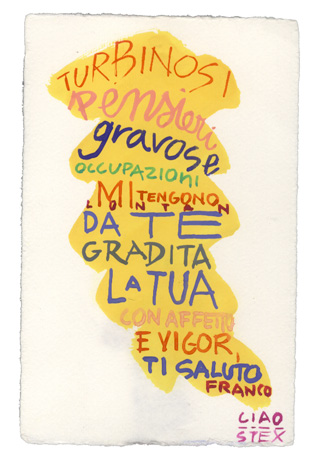 TURBINOSI
pensieri
gravose
OCCUPAZIONI
MI TENGONO
LONTAN
DA TE
GRADITA
LA TUA
CON AFFETTO
E VIGOR,
TI SALUTO
FRANCO
CIAO
STEX